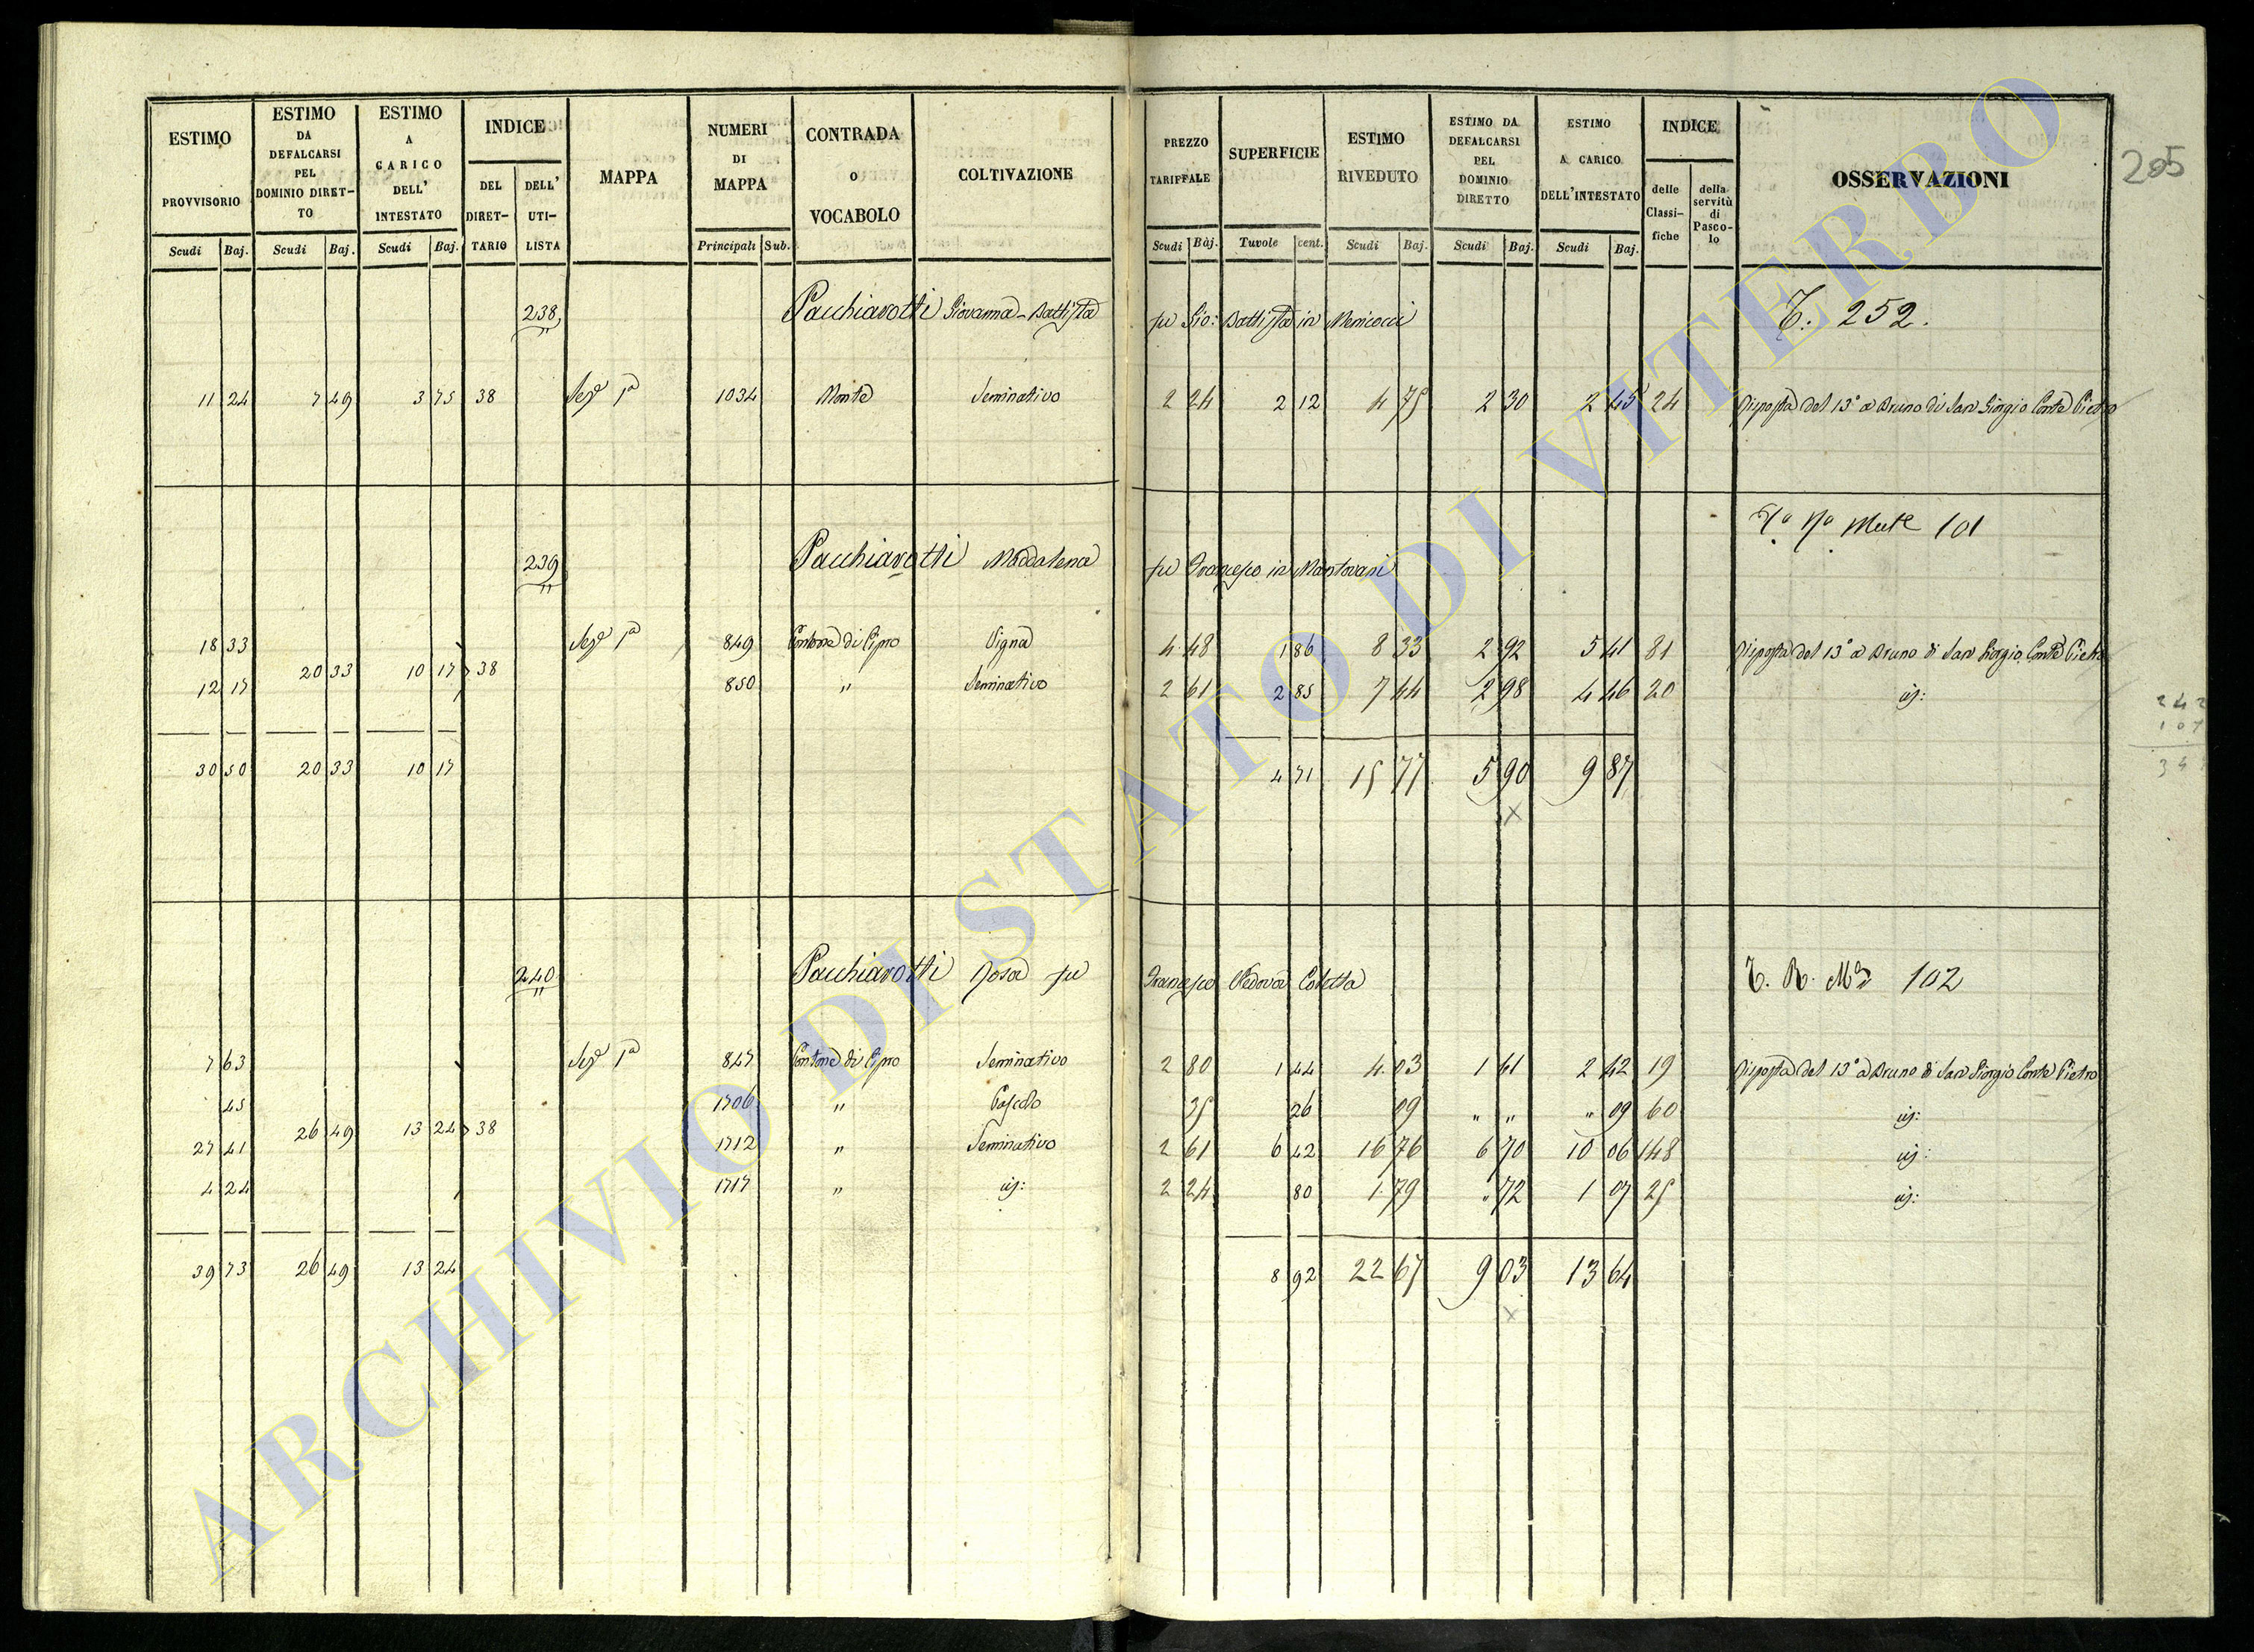 ESTIMO PROVVISORIO Scudi Baj.
ESTIMO DA DEFALCARSI PEL DOMINIO DIRET-TO Scudi Baj.
ESTIMO A CARICO DELL' INTESTATO Scudi Baj.
INDICE DEL DIRET-TARIO DELL' UTI-LISTA
MAPPA
NUMERI DI MAPPA Principali Sub.
CONTRADA o VOCABOLO
COLTIVAZIONE
PREZZO TARIFFALE Scudi Baj.
SUPERFICIE Tavole cent.
ESTIMO RIVEDUTO Scudi Baj.
ESTIMO DA DEFALCARSI PEL DOMINIO DIRETTO Scudi Baj.
ESTIMO A CARICO DELL'INTESTATO Scudi Baj.
INDICE delle Classi-fiche della servitù di Pasco-lo
OSSERVAZIONI
205
238 Pacchiarotti Giovanna-Battista fu Gio: Battista in Menicocci T. 252.
11 24 7 49 3 75 38 Sez.e 1a 1034 Monte Seminativo 2 24 2 12 4 75 2 30 2 45 24 Risposta del 13° a Bruno di San Giorgio Conte Pietro
101
239 Pacchiarotti Maddalena fu Francesco in Mantovani
18 33 Sez.e 1a 849 Contone di Cipro Vigna 4 48 1 86 8 33 2 92 5 41 81 Risposta del 13° a Bruno di San Giorgio Conte Pietro
20 33 10 17 38
12 17 850 " Seminativo 2 61 2 85 7 44 2 98 4 46 20 id:
30 50 20 33 10 17 4 71 15 77 5 90 9 87
X
240 Pacchiarotti Rosa fu Francesco Vedova Coletta T. R. 102
7 63 Sez.e 1a 847 Contone di Cipro Seminativo 2 80 1 44 4 03 1 61 2 42 19 Risposta del 13° a Bruno di San Giorgio Conte Pietro
45 1706 " Pascolo 35 26 09 " " " 09 60 id:
26 49 13 24 38
27 41 1712 " Seminativo 2 61 6 42 16 76 6 70 10 06 148 id:
4 24 1717 " id: 2 24 80 1 79 " 72 1 07 25 id:
39 73 26 49 13 24 8 92 22 67 9 03 13 64
X
ARCHIVIO DI STATO DI VITERBO